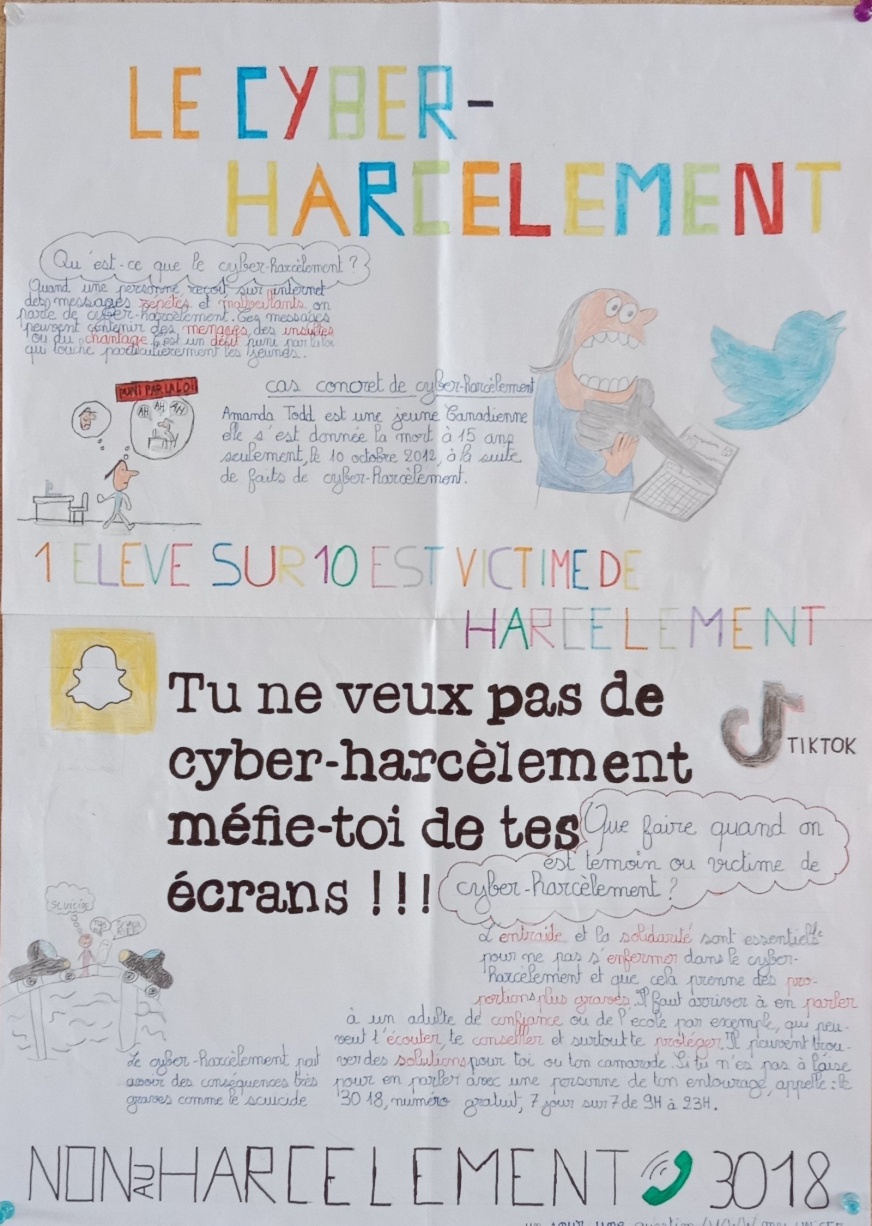 LE CYBER-
HARCELEMENT
Qu'est-ce que le cyber-harcèlement ?
Quand une personne reçoit sur internet
des messages répétés et malveillants on
parle de cyber-harcèlement. Ces messages
peuvent contenir des menaces, des insultes
ou du chantage. C'est un délit puni par la loi
qui touche particulièrement les jeunes.
PUNI PAR LA LOI
AH AH AH
cas concret de cyber-harcèlement
Amanda Todd est une jeune Canadienne
elle s'est donnée la mort à 15 ans
seulement, le 10 octobre 2012, à la suite
de faits de cyber-harcèlement.
1 ELEVE SUR 10 EST VICTIME DE
HARCELEMENT
Tu ne veux pas de
cyber-harcèlement
méfie-toi de tes
écrans !!!
TIKTOK
Que faire quand on
est témoin ou victime de
cyber-harcèlement ?
L'entraide et la solidarité sont essentielle
pour ne pas s'enfermer dans le cyber-
harcèlement et que cela prenne des pro-
portions plus graves. Il faut arriver à en parler
à un adulte de confiance ou de l'école par exemple, qui peu-
vent t'écouter, te conseiller et surtout te protéger. Il peuvent trou-
ver des solutions pour toi ou ton camarade. Si tu n'es pas à l'aise
pour en parler avec une personne de ton entourage, appelle : le
30 18, numéro gratuit, 7 jour sur 7 de 9H à 23H.
SCUICIDE
Le cyber-harcèlement peut
avoir des conséquences très
graves comme le scuicide
NON AU HARCELEMENT 3018